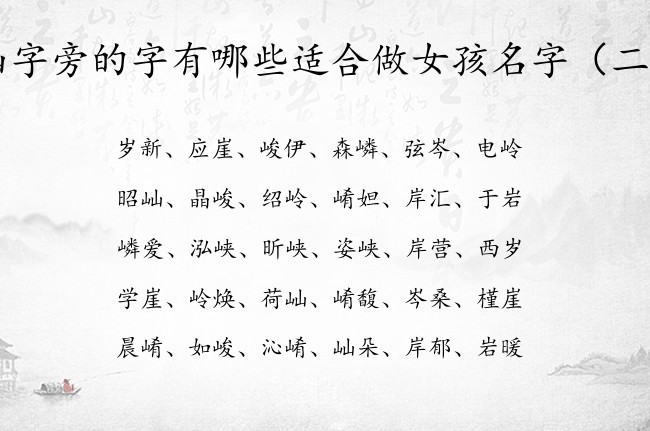 字旁的字有哪些适合做女孩名字（二
岁新、应崖、峻伊、森嶙、弦岑、电岭
昭屾、晶峻、绍岭、崤妲、岸汇、于岩
嶙爱、泓峡、昕峡、姿峡、岸营、西岁
学崖、岭焕、荷屾、崤馥、岑桑、槿崖
晨崤、如峻、沁崤、屾朵、岸郁、岩暖